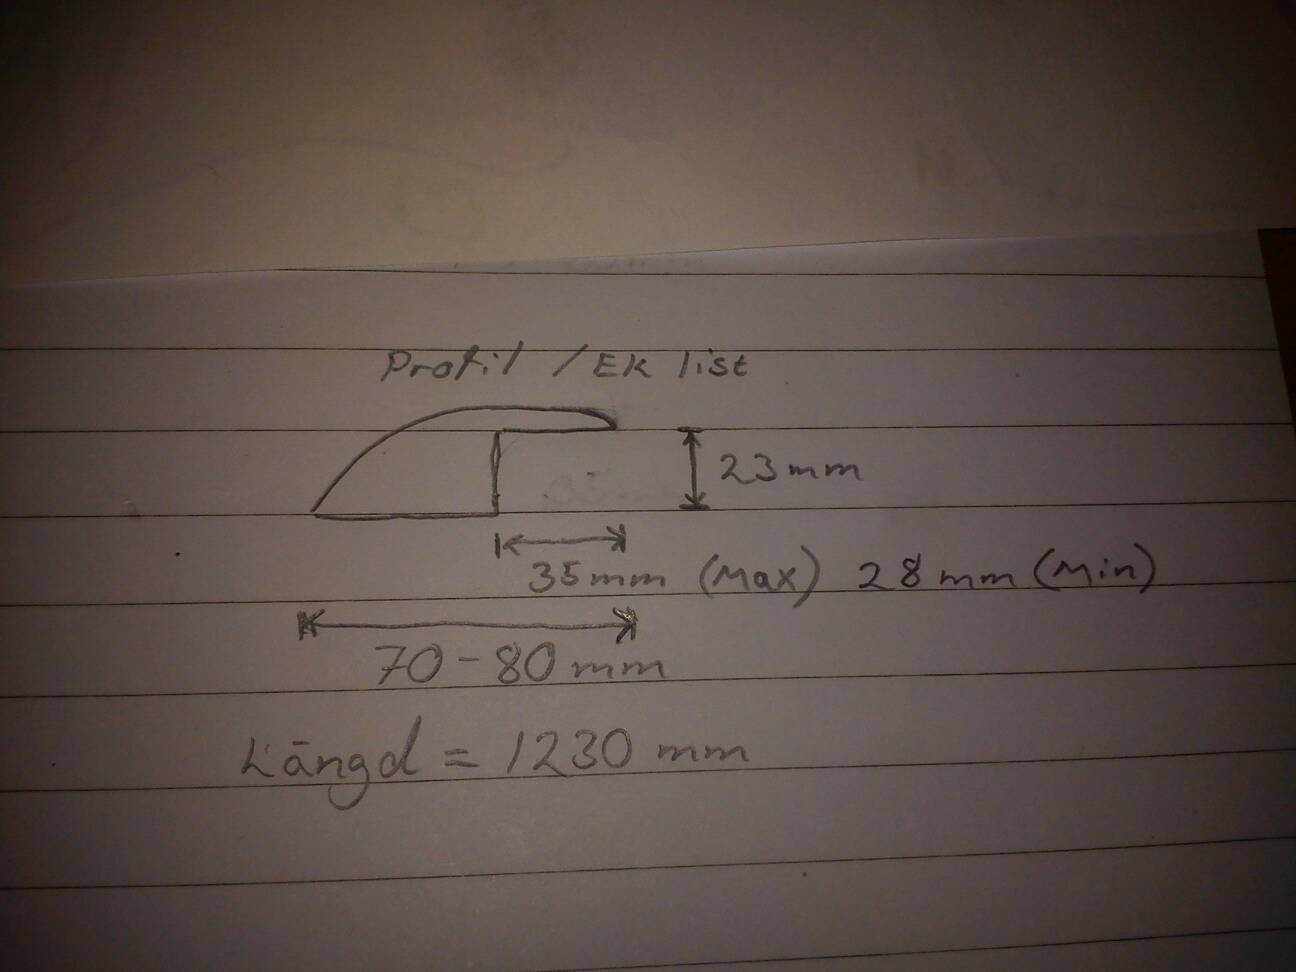 Profil / EK list
23mm
35mm (Max) 28mm (Min)
70-80mm
Längd = 1230 mm